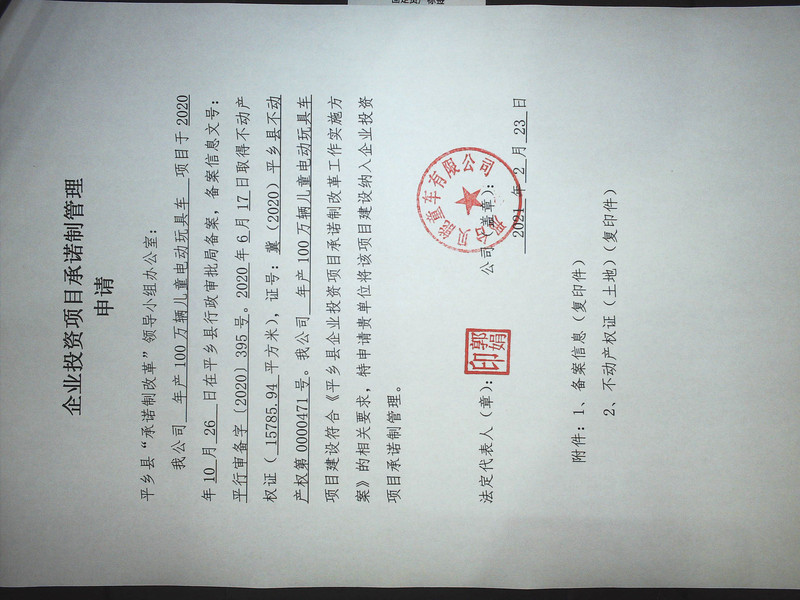 企业投资项目承诺制管理
申请
平乡县“承诺制改革”领导小组办公室：
我公司 年产100万辆儿童电动玩具车 项目于2020
年10月26日在平乡县行政审批局备案，备案信息文号：
平行审备字〔2020〕395号。2020年6月17日取得不动产
权证（15785.94平方米），证号：冀（2020）平乡县不动
产权第0000471号。我公司 年产100万辆儿童电动玩具车
项目建设符合《平乡县企业投资项目承诺制改革工作实施方
案》的相关要求，特申请贵单位将该项目建设纳入企业投资
项目承诺制管理。
法定代表人（章）： 公司（盖章）：
郭娟
印
童车有限公司
2021年2月23日
附件：1、备案信息（复印件）
2、不动产权证（土地）（复印件）